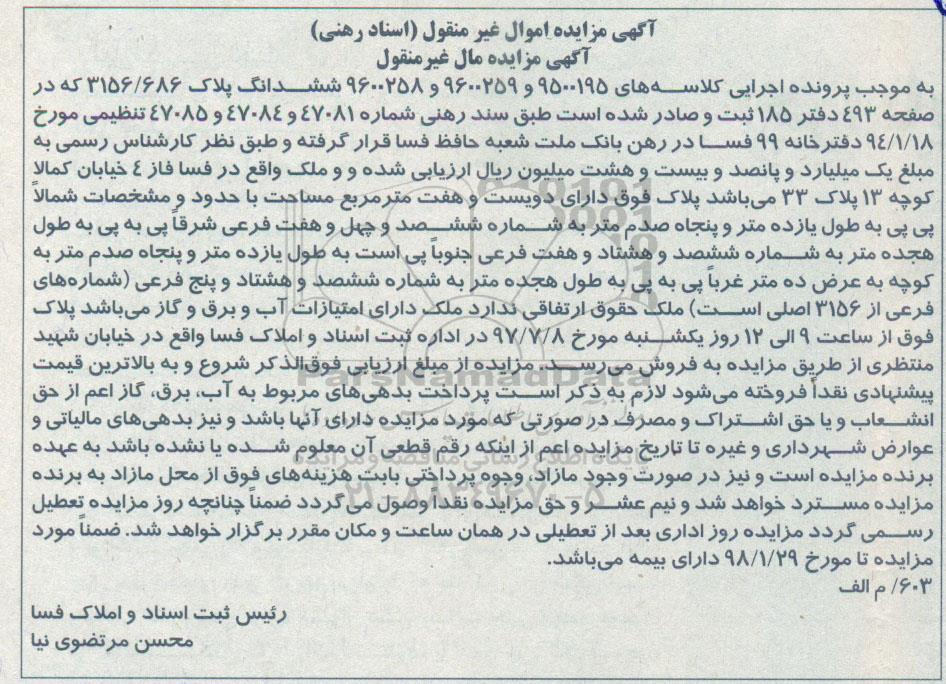 آگهی مزایده اموال غیر منقول (اسناد رهنی)
آگهی مزایده مال غیرمنقول
به موجب پرونده اجرایی کلاسه‌های ۹۵۰۰۱۹۵ و ۹۶۰۰۲۵۹ و ۹۶۰۰۲۵۸ ششدانگ پلاک ۳۱۵۶/۶۸۶ که در
صفحه ۴۹۳ دفتر ۱۸۵ ثبت و صادر شده است طبق سند رهنی شماره ۴۷۰۸۱ و ۴۷۰۸۴ و ۴۷۰۸۵ تنظیمی مورخ
۹۴/۱/۱۸ دفترخانه ۹۹ فسا در رهن بانک ملت شعبه حافظ فسا قرار گرفته و طبق نظر کارشناس رسمی به
مبلغ یک میلیارد و پانصد و بیست و هشت میلیون ریال ارزیابی شده و و ملک واقع در فسا فاز ۴ خیابان کمالا
کوچه ۱۳ پلاک ۳۳ می‌باشد پلاک فوق دارای دویست و هفت مترمربع مساحت با حدود و مشخصات شمالاً
پی پی به طول یازده متر و پنجاه صدم متر به شماره ششصد و چهل و هفت فرعی شرقاً پی به پی به طول
هجده متر به شماره ششصد و هشتاد و هفت فرعی جنوباً پی است به طول یازده متر و پنجاه صدم متر به
کوچه به عرض ده متر غرباً پی به پی به طول هجده متر به شماره ششصد و هشتاد و پنج فرعی (شماره‌های
فرعی از ۳۱۵۶ اصلی است) ملک حقوق ارتفاقی ندارد ملک دارای امتیازات آب و برق و گاز می‌باشد پلاک
فوق از ساعت ۹ الی ۱۲ روز یکشنبه مورخ ۹۷/۷/۸ در اداره ثبت اسناد و املاک فسا واقع در خیابان شهید
منتظری از طریق مزایده به فروش می‌رسد. مزایده از مبلغ ارزیابی فوق‌الذکر شروع و به بالاترین قیمت
پیشنهادی نقداً فروخته می‌شود لازم به ذکر است پرداخت بدهی‌های مربوط به آب، برق، گاز اعم از حق
انشعاب و یا حق اشتراک و مصرف در صورتی که مورد مزایده دارای آنها باشد و نیز بدهی‌های مالیاتی و
عوارض شهرداری و غیره تا تاریخ مزایده اعم از اینکه رقم قطعی آن معلوم شده یا نشده باشد به عهده
برنده مزایده است و نیز در صورت وجود مازاد، وجوه پرداختی بابت هزینه‌های فوق از محل مازاد به برنده
مزایده مسترد خواهد شد و نیم عشر و حق مزایده نقداً وصول می‌گردد ضمناً چنانچه روز مزایده تعطیل
رسمی گردد مزایده روز اداری بعد از تعطیلی در همان ساعت و مکان مقرر برگزار خواهد شد. ضمناً مورد
مزایده تا مورخ ۹۸/۱/۲۹ دارای بیمه می‌باشد.
۶۰۳/ م الف
رئیس ثبت اسناد و املاک فسا
محسن مرتضوی نیا
ParsNamadData
۰۲۱-۸۸۳۴۹۶۷۰-۵